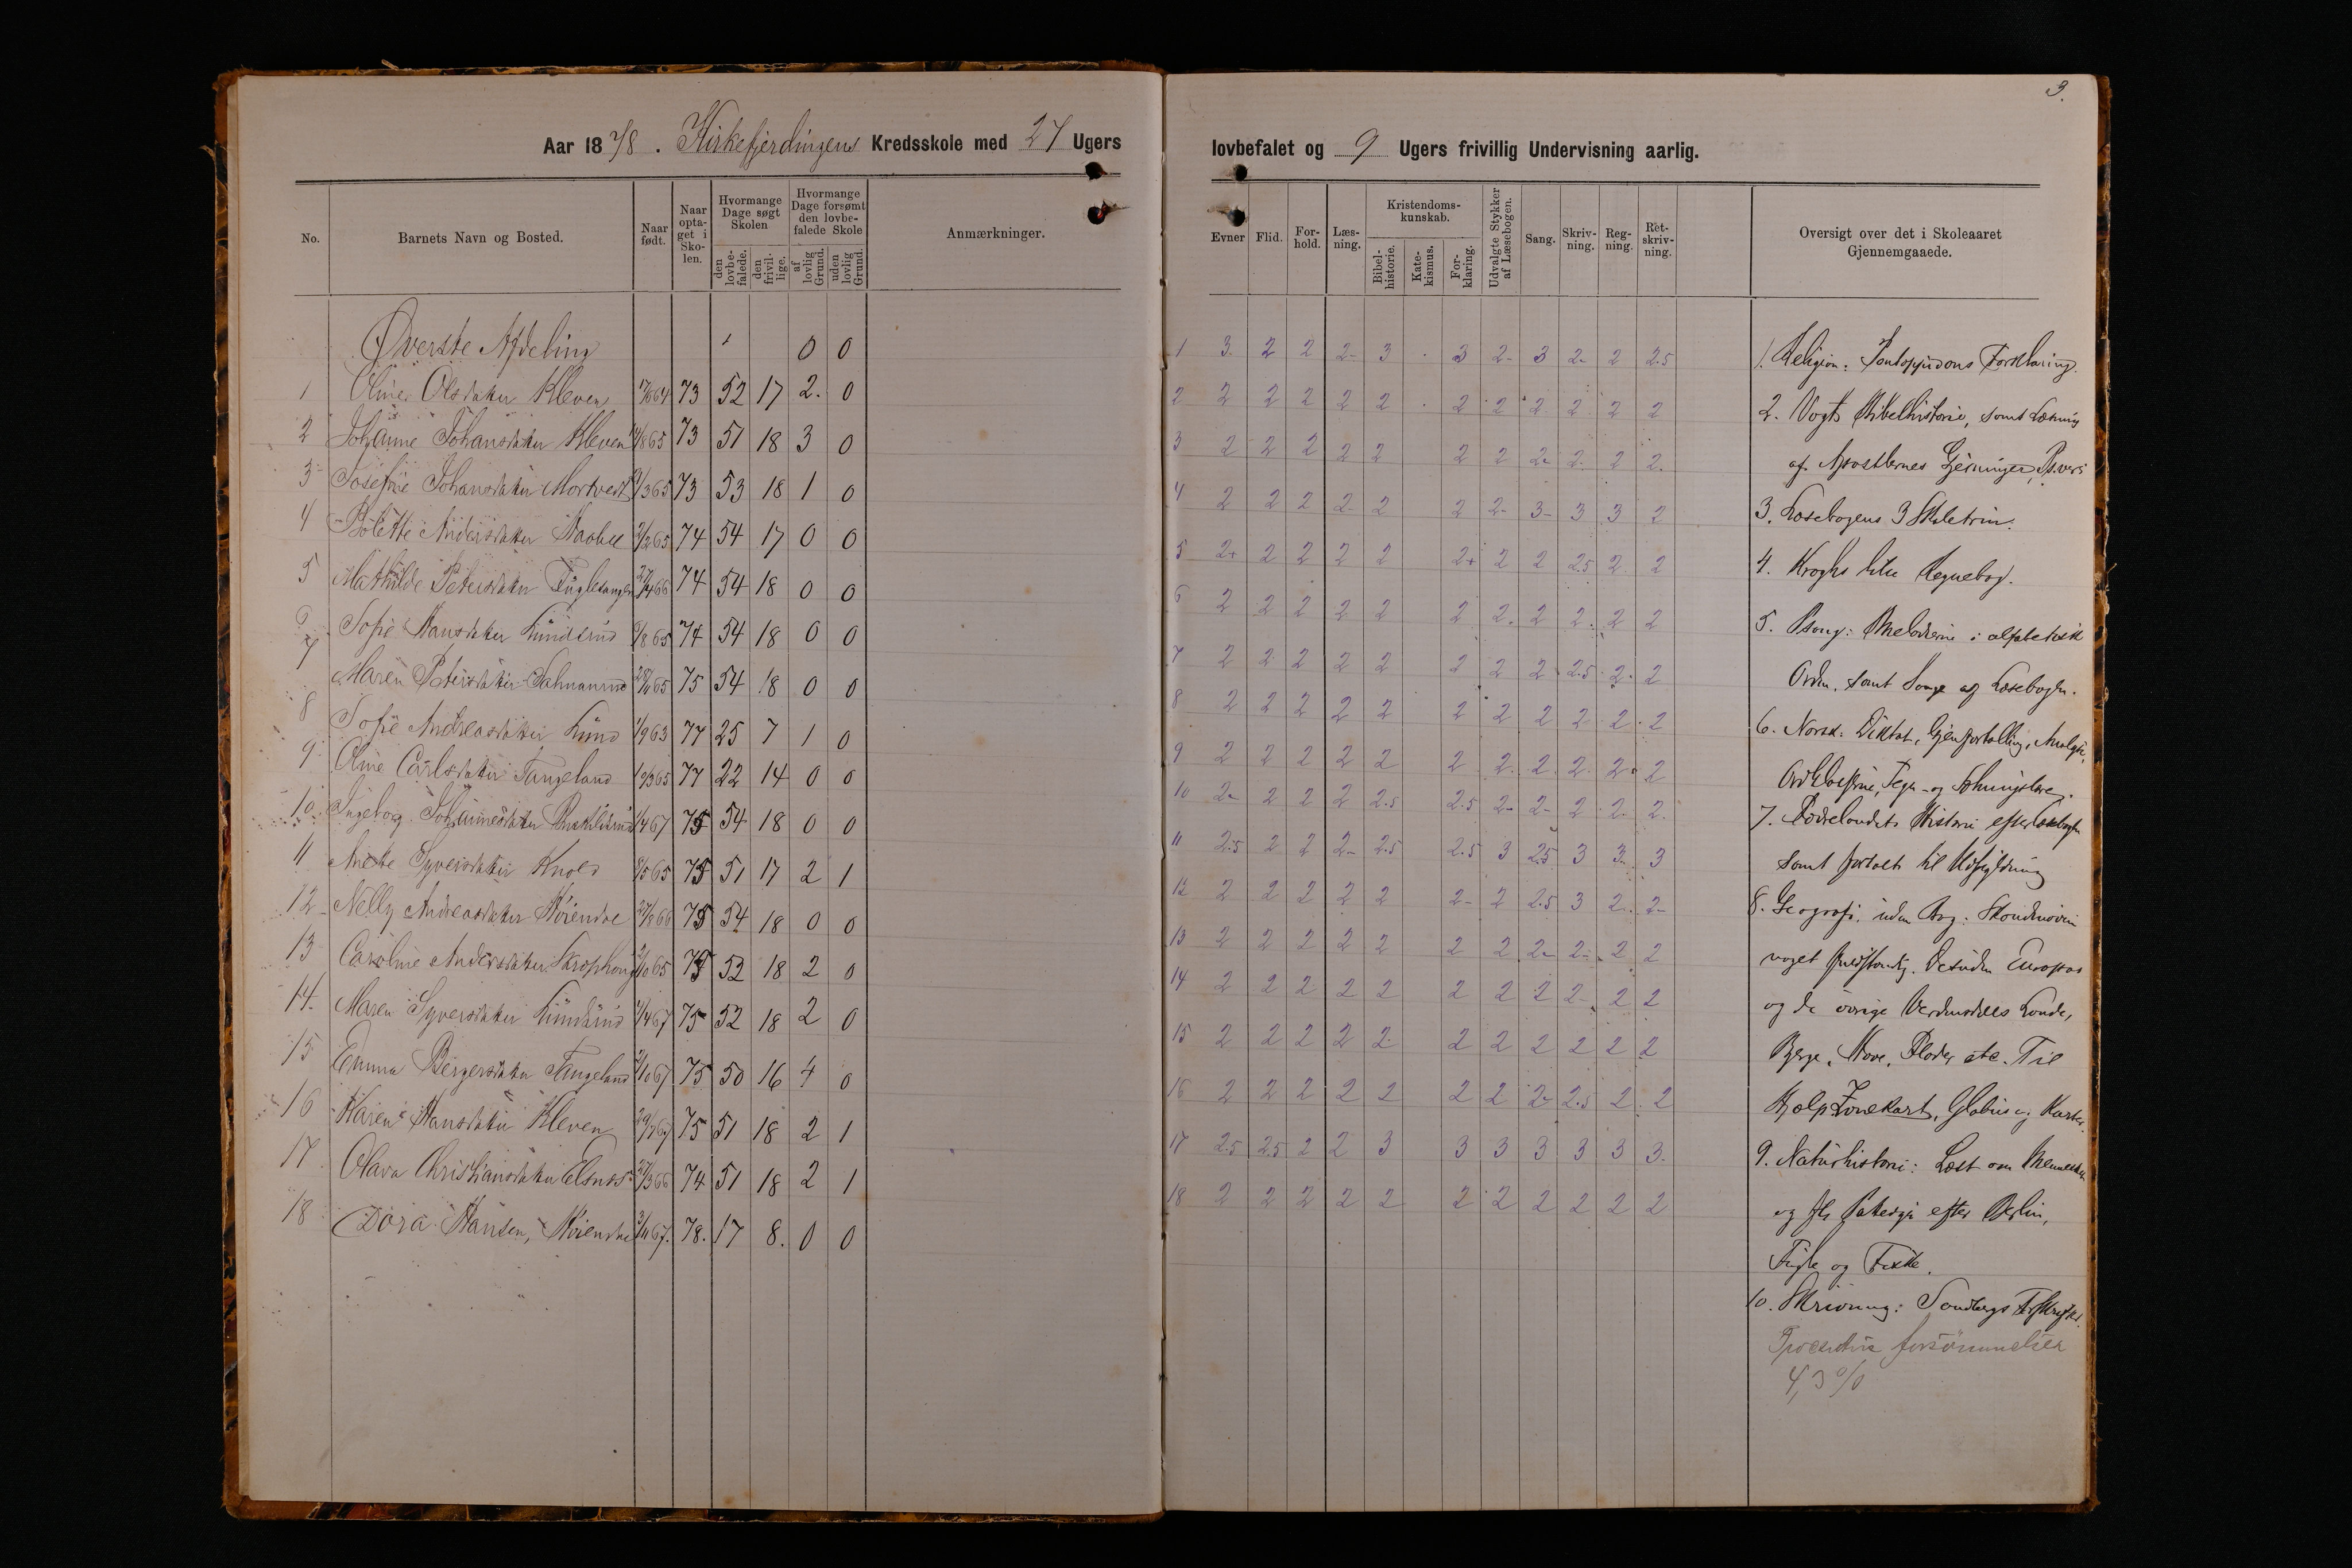 Aar 1878. Kirkefjerdingens Kredsskole med 27 Ugers
No. Barnets Navn og Bosted. Naar født. Naar optaget i Skolen. Hvormange Dage søgt Skolen den lovbefalede. den frivillige. Hvormange Dage forsømt den lovbefalede Skole af lovlig Grund. uden lovlig Grund. Anmærkninger.
Øverste Afdeling 0 0
1 Oline Olsdatter Kleven 17/6 64 73 52 17 2. 0
2 Johanne Johansdatter Kleven 14/8 65 73 51 18 3 0
3 Josefine Johansdatter Mortvedt 3/3 65 73 53 18 1 0
4 Bolette Andersdatter 2/2 65 74 54 17 0 0
5 Mathilde Petersdatter Fuglesangen 27/4 66 74 54 18 0 0
6 Sofie Hansdatter Lunderud 6/8 65 74 54 18 0 0
7 Maren Petersdatter 29/11 65 75 54 18 0 0
8 Sofie Andreasdatter Lund 1/9 63 77 25 7 1 0
9 Oline Carlsdatter Tangeland 19/3 65 77 22 14 0 0
10 Ingeborg Johannesdatter 1/4 67 75 54 18 0 0
11 Anette Syversdatter Knold 8/5 65 75 51 17 2 1
12 Nelly Andreasdatter 27/8 66 75 54 18 0 0
13 Caroline Andersdatter 2/10 65 75 52 18 2 0
14. Maren Syversdatter Lunderud 4/4 67 75 52 18 2 0
15 Emma Bergersdatter Tangeland 2/10 67 75 50 16 4 0
16 Karen Hansdatter Kleven 75 51 18 2 1
17 Olava Christiansdatter Elsnes 27/3 66 74 51 18 2 1
18 Dora Hansen, 3/11 67. 78. 17 8. 0 0
3.
lovbefalet og 9 Ugers frivillig Undervisning aarlig.
Evner Flid. Forhold. Læsning. Kristendomskunskab. Bibelhistorie. Katekismus. Forklaring. Udvalgte Stykker af Læsebogen. Sang. Skrivning. Regning. Retskrivning. Oversigt over det i Skoleaaret Gjennemgaaede.
1 3. 2 2 2- 3 3 2- 3 2- 2 2.5
2 2 2 2 2 2 2 2 2 2 2 2
3 2 2 2 2 2 2 2 2- 2. 2 2.
4 2 2 2 2- 2 2 2- 3- 3 3 2
5 2+ 2 2 2 2 2+ 2 2 2.5 2 2
6 2 2 2 2 2 2 2. 2 2. 2 2
7 2 2 2 2 2 2 2 2 2.5 2. 2
8 2 2 2 2 2 2 2 2 2 2 2
9 2 2 2 2 2 2 2. 2. 2. 2 2
10 2- 2 2 2 2.5 2.5 2- 2- 2 2 2.
11 2.5 2 2 2- 2.5 2.5 3 2.5 3 3- 3
12 2 2 2 2 2 2- 2 2.5 3 2. 2-
13 2 2 2 2 2 2 2 2- 2- 2 2
14 2 2 2 2 2 2 2 2 2- 2 2
15 2 2 2 2 2. 2 2 2 2 2 2
16 2 2 2 2 2 2 2 2- 2.5 2 2
17 2.5 2.5 2 2 3 3 3 3 3 3 3.
18 2 2 2 2 2 2 2 2 2 2 2
1. Religion: Pontoppidans Forklaring.
2. Vogts Bibelhistorie, samt Læsning
af Apostlernes Gjerninger,
3. Læsebogens 3 Skoletrin.
4. Kroghs lille Regnebog.
5. Psang: Melodierne i alfabetisk
Orden. samt Sange af Læsebogen.
6. Norsk: Diktat, Gjenfortælling, Analyse,
Ordklasserne, Tegn- og Sætningslære.
7. Fædrelandets Historie efter Læsebogen
samt fortalt til Udfyldning
8. Geografi. uden Bog: Skandinavien
noget fuldstændig. Desuden Europas
og de øvrige Verdensdeles Lande,
Bjerge, Have, Floder etc. Til
Hjælp Zonekart, Globus og Karter.
9. Naturhistorie: Læst om Mennesket
og fler Pattedyr efter Berlin,
Fugle og Fiske.
10. Skrivning: Sandbergs Forskrifter.
forsömmelser
4,3 %